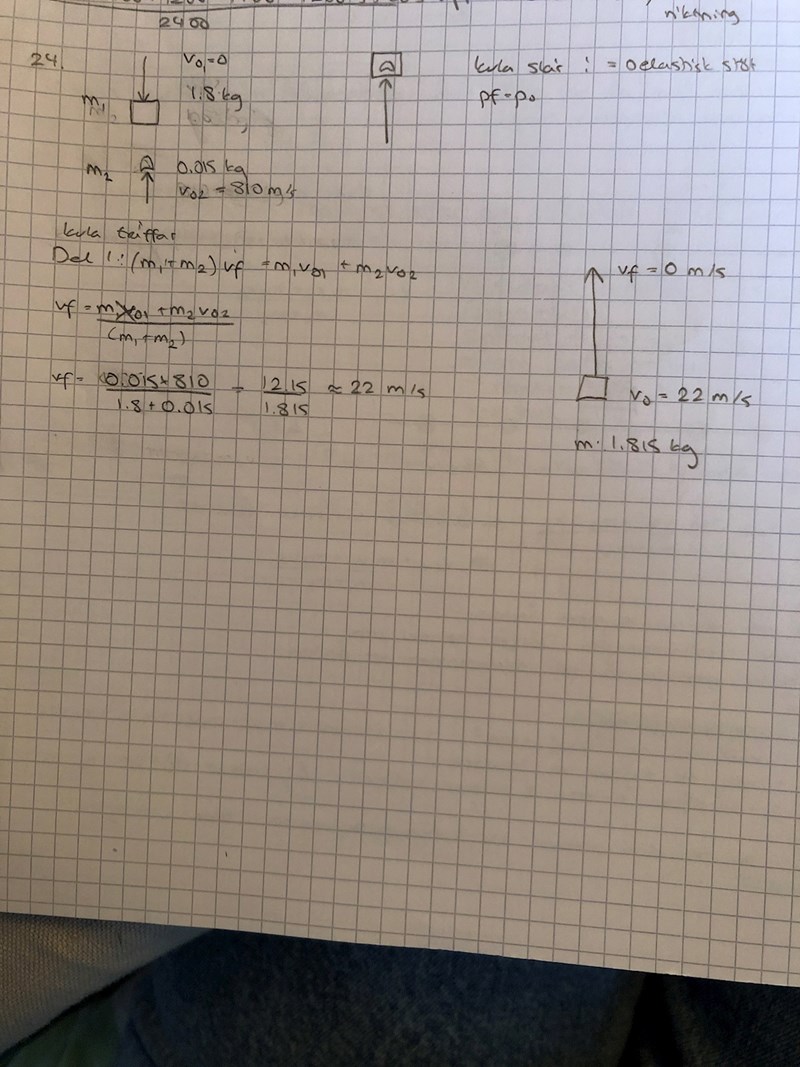 2400
riktning
24.
v01=0
1.8 kg
m1
m2
0.015 kg
v02 = 810 m/s
kula slår i = oelastisk stöt
pf=p0
kula träffar
Del 1: (m1+m2) vf = m1v01 + m2v02
vf = m1v01 + m2v02
(m1+m2)
vf = 0.015×810 = 12.15 ≈ 22 m/s
1.8+0.015 1.815
vf = 0 m/s
v0 = 22 m/s
m: 1.815 kg